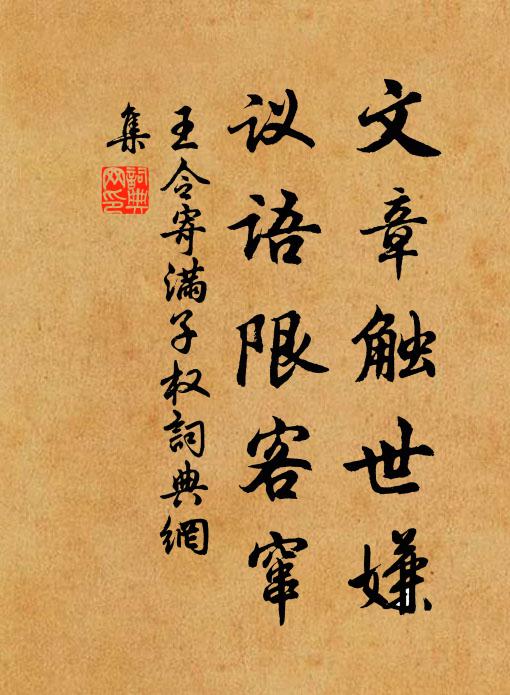 文章触世嫌
议语限客窜
王令寄满子权詞典網
集
詞典
网印